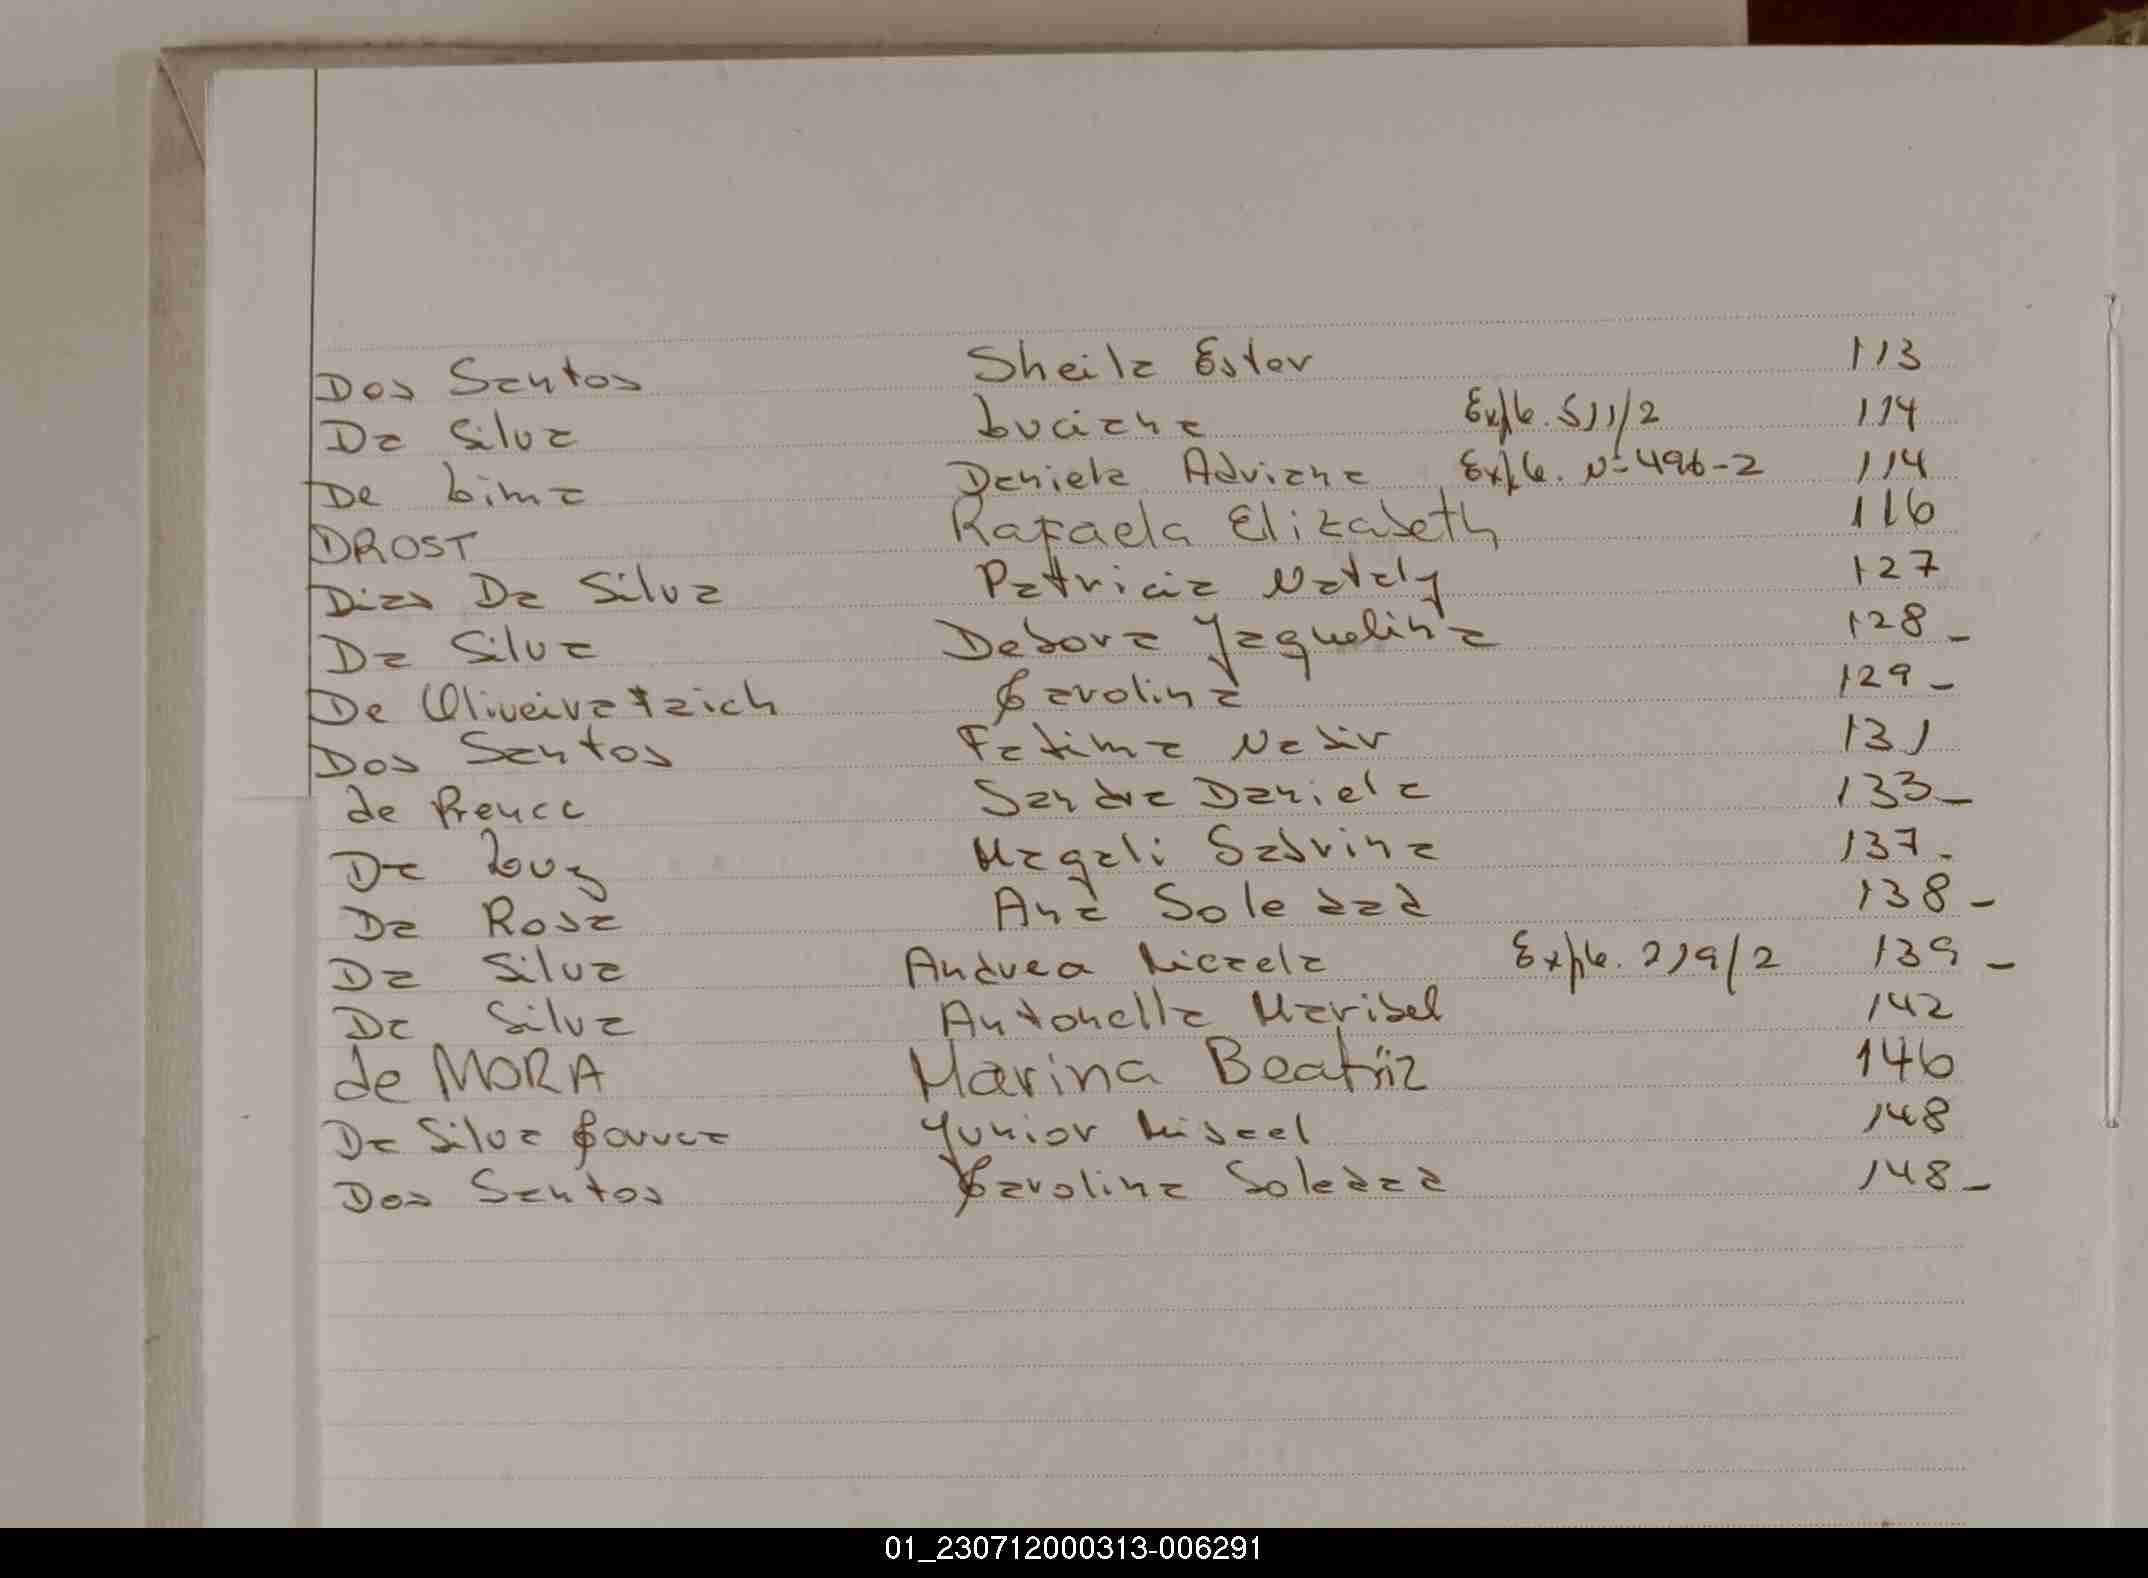 Dos Santos Sheila Ester 113
Da Silva Luciana Expte. 511/2 114
De Lima Daniela Adriana Expte. Nº 496-2 114
DROST Rafaela Elizabeth 116
Dias Da Silva Patricia Nataly 127
Da Silva Debora Jaquelina 128 -
De Oliveira Carolina 129 -
Dos Santos Fatima Nadir 131
de Sandra Daniela 133 -
Da Magali Sabrina 137 -
Da Rosa Ana Soledad 138 -
Da Silva Andrea Micaela Expte. 219/2 139 -
Da Silva Antonella Marisel 142
de MORA Marina Beatriz 146
Da Silva Yunior Misael 148
Dos Santos Carolina Soledad 148 -
01_230712000313-006291